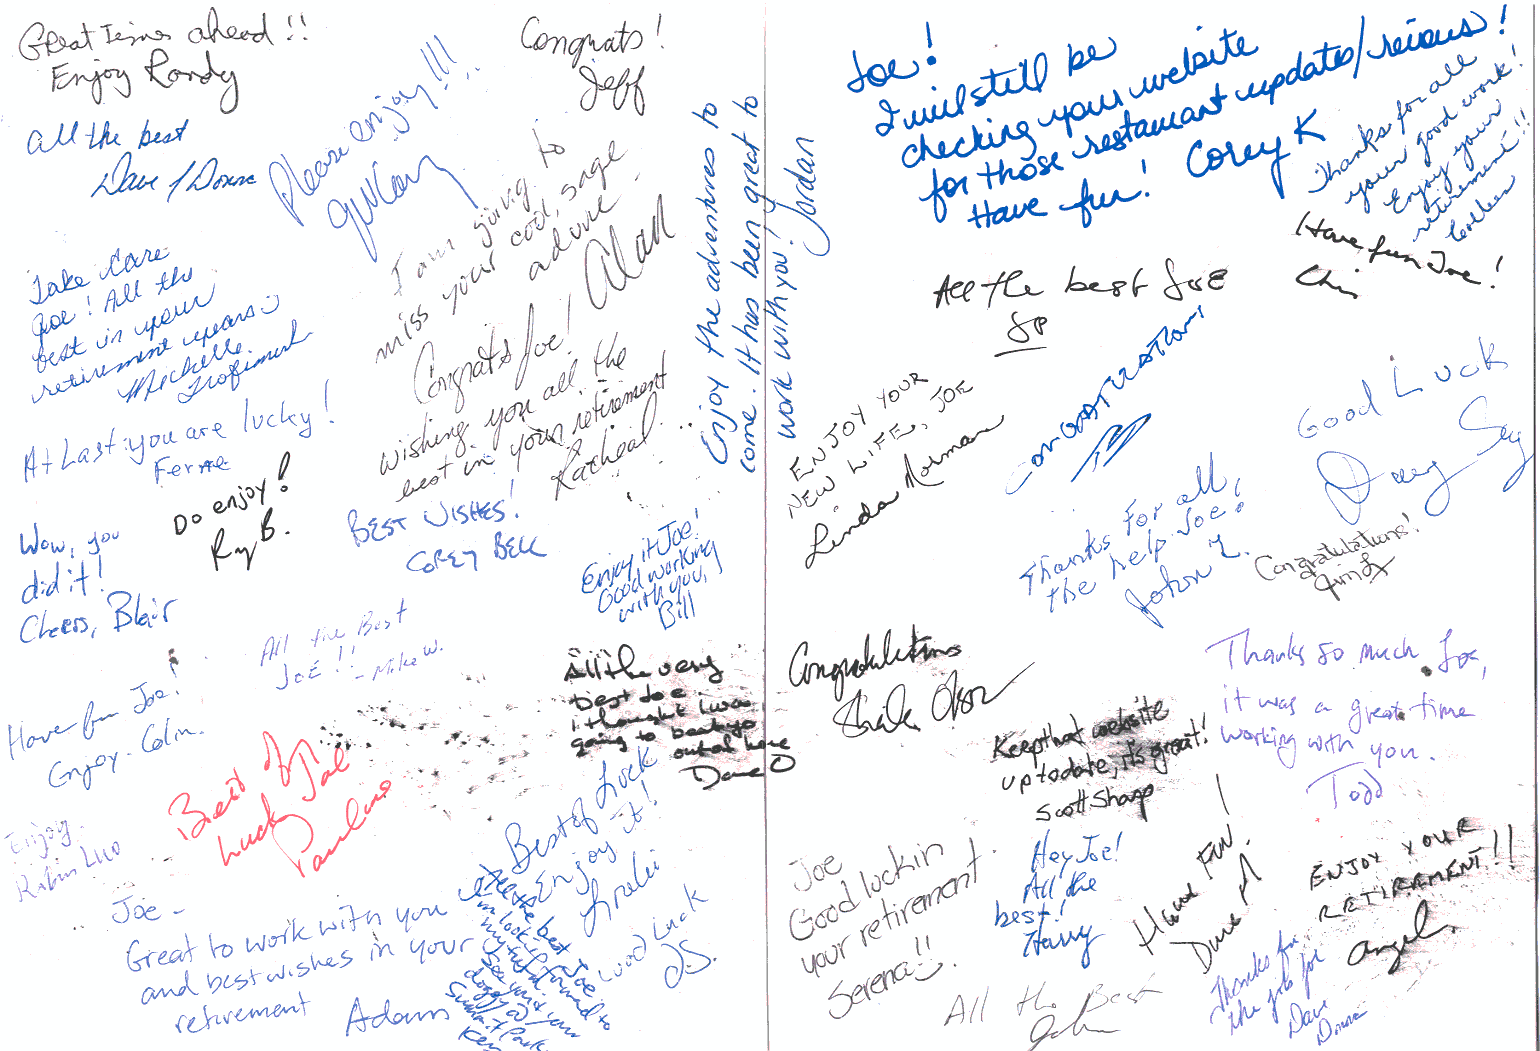 Great Times ahead!!
Enjoy Randy
Congrats!
Jeff
All the best
Dave / Donna
Please enjoy!!!
I am going to
miss your cool, sage
advice.
Congrats Joe! Alan
Enjoy the adventures to
come. It has been great to
work with you! Jordan
Take Care
Joe! All the
best in your
retirement years
Michelle
At Last you are lucky!
Ferne
Wishing you all the
best in your retirement
Racheal
Do enjoy!
Ray B.
Best Wishes!
Corey Bell
Wow, you
did it!
Cheers, Blair
Enjoy it Joe!
Good working
with you,
Bill
All the Best
Joe!!
- Mike W.
Have fun Joe!
Enjoy - Colin.
All the very
best Joe
I thought I was
going to beat you
out of here
Dave O
Best of
Luck Joe
Pauline
Enjoy
Robin Luo
Best of Luck
Enjoy it!
Joe -
Great to work with you
and best wishes in your
retirement
Adam
All the best Joe
I'm looking forward to
see you & your
doggy @
Summit Park
Ken
Good Luck
JS.
Joe!
I will still be
checking your website
for those restaurant updates/reviews!
Have fun! Corey K
Thanks for all
your good work!
Enjoy your
retirement!!
Colleen
Have fun Joe!
Chris
All the best Joe
Congratulations!
Enjoy your
new life, Joe
Linda Norman
Good Luck
Thanks for all
the help Joe!
Congratulations!
Jim L
Congratulations
Thanks so much Joe,
it was a great time
working with you.
Todd
Keep that website
up to date, it's great!
Scott Sharp
Joe
Good luck in
your retirement
Serena!!
Hey Joe!
All the
best!
Harry
Have Fun!
Dave M
Enjoy your
retirement!!
Angela
All the Best
John
Thanks for
the job for
Dave
Donna